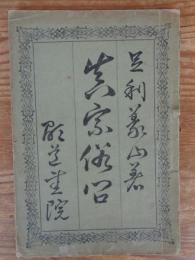 足利義山著
真宗俗名
顕道書院